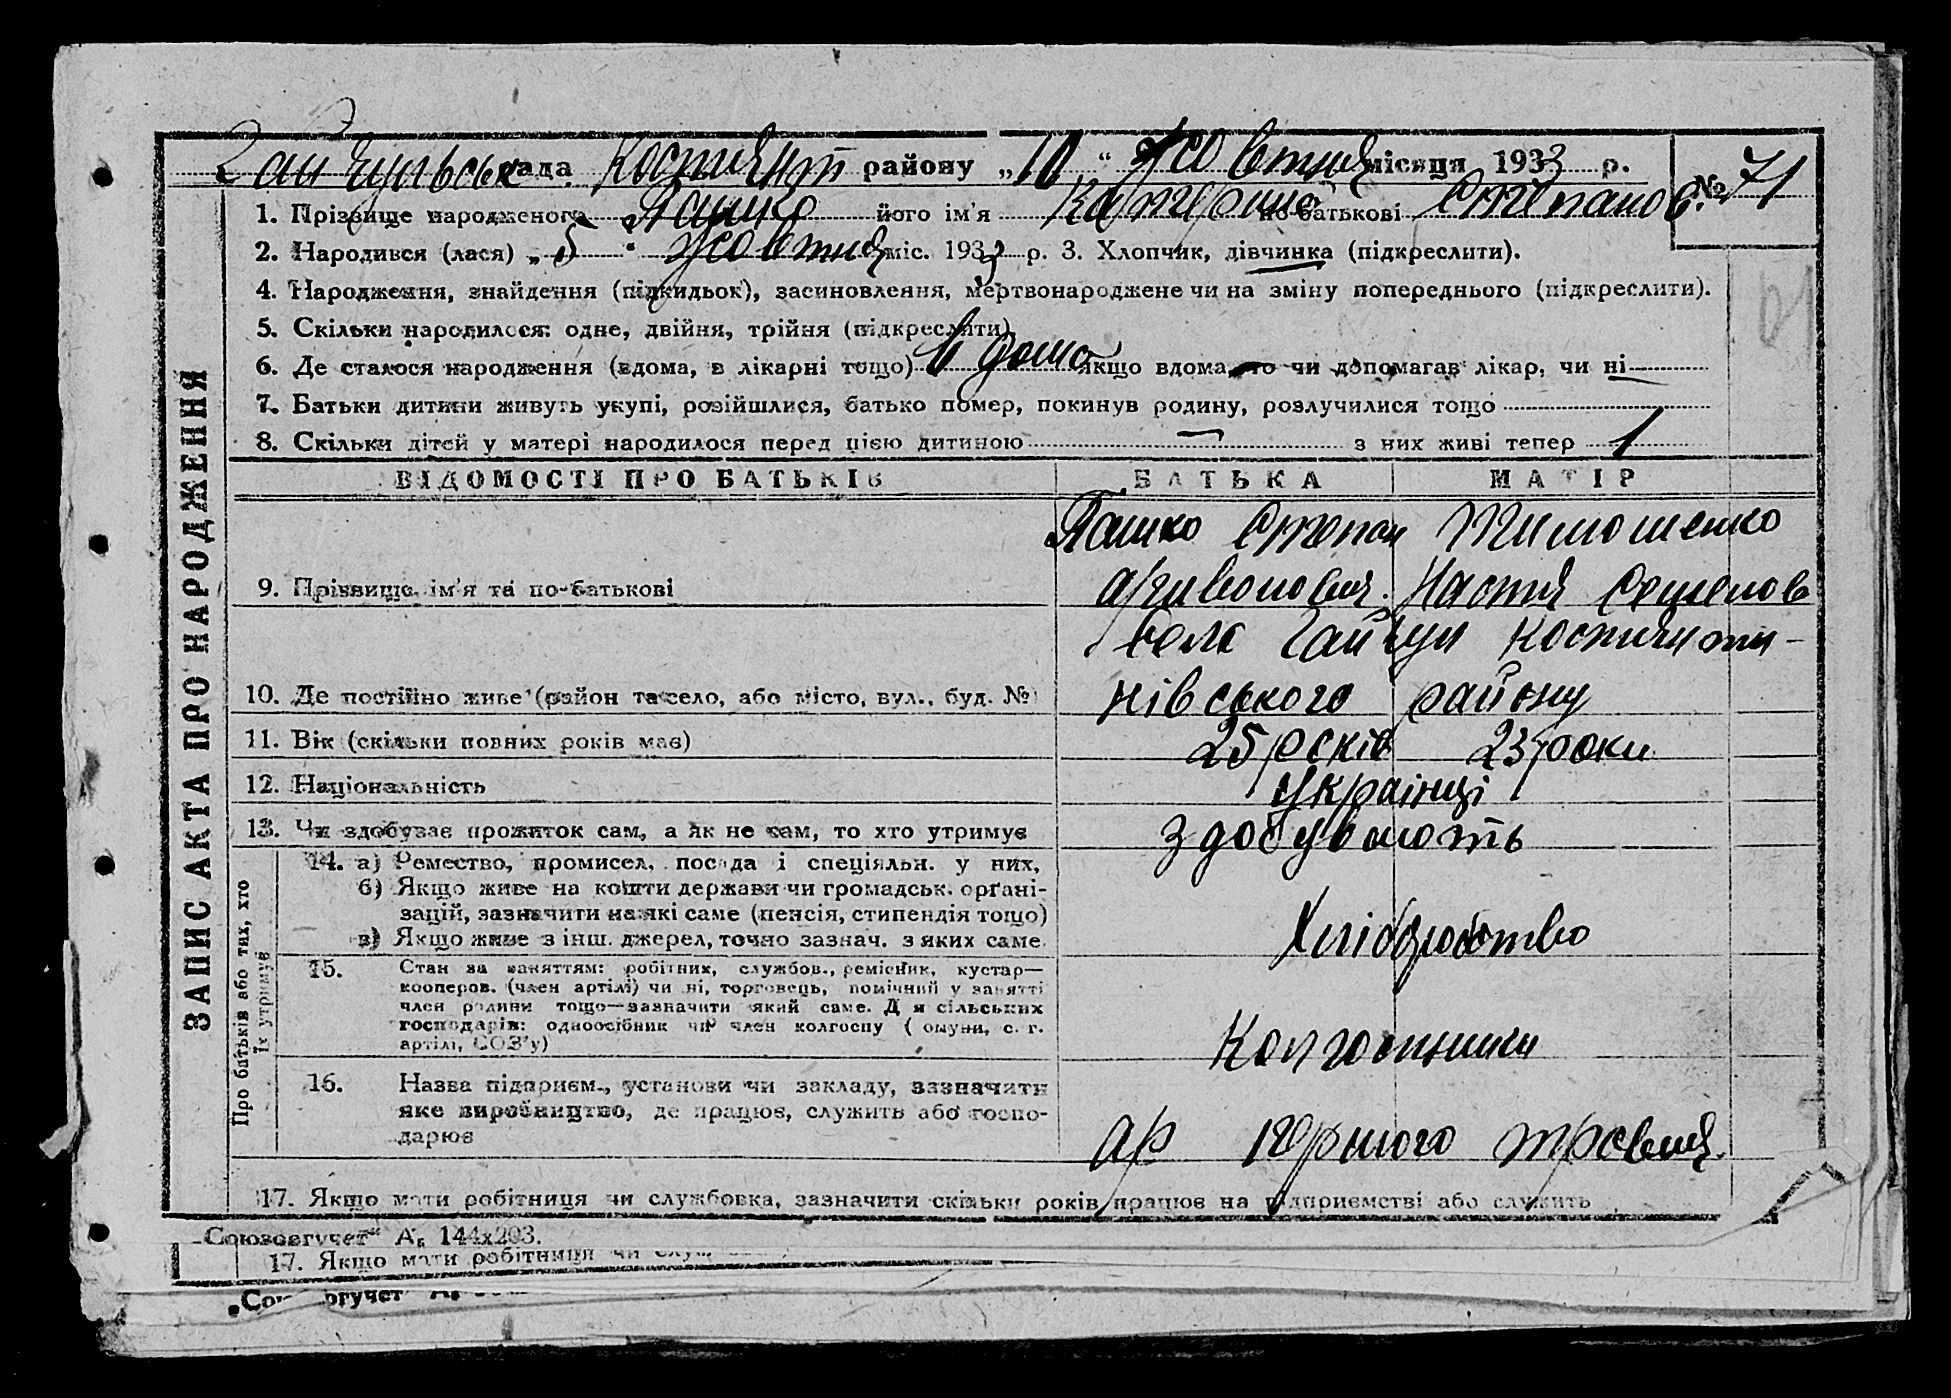 Гайчульська рада Костянт району „10“ Жовтня місяця 1933 р. № 71
1. Прізвище народженого Пашко його ім'я Катерина по батькові Степанов.
2. Народився (лася) „5“ жовтня міс. 1933 р. 3. Хлопчик, дівчинка (підкреслити).
4. Народження, знайдення (підкидьок), засиновлення, мертвонароджене чи на зміну попереднього (підкреслити).
5. Скільки народилося: одне, двійня, трійня (підкреслити)
6. Де сталося народження (вдома, в лікарні тощо) в дома якщо вдома, то чи допомагав лікар, чи ні
7. Батьки дитини живуть укупі, розійшлися, батько помер, покинув родину, розлучилися тощо
8. Скільки дітей у матері народилося перед цією дитиною — з них живі тепер 1
ЗАПИС АКТА ПРО НАРОДЖЕННЯ
ВІДОМОСТІ ПРО БАТЬКІВ БАТЬКА МАТІР
Пашко Степан Тимошенко
9. Прізвище, ім'я та по-батькові Настя Семенов
село Гайчул Костянти-
10. Де постійно живе (район та село, або місто, вул., буд. № нівського району
11. Вік (скільки повних років має) 25 років 23 роки
12. Національність Українці
13. Чи здобуває прожиток сам, а як не сам, то хто утримує здобувають
Про батьків або тих, хто їх утримує
14. а) Ремество, промисел, посада і спеціяльн. у них,
б) Якщо живе на кошти держави чи громадськ. органі-
зацій, зазначити на які саме (пенсія, стипендія тощо)
в) Якщо живе з інш. джерел, точно зазнач. з яких саме Хліборобство
15. Стан за заняттям: робітник, службов., ремісник, кустар—
кооперов. (член артілі) чи ні, торговець, помічний у занятті
член родини тощо—зазначити який саме. Для сільських
господарів: одноосібник чи член колгоспу ( омуни, с. г.
артілі, СОЗ'у) Колгоспники
16. Назва підприєм., установи чи закладу, зазначити
яке виробництво, де працює, служить або госпо-
дарює ар Першого травня.
17. Якщо мати робітниця чи службовка, зазначити скільки років працює на підприємстві або служить
„Союзоргучет“ А₆ 144x203.
17. Якщо мати робітниця чи